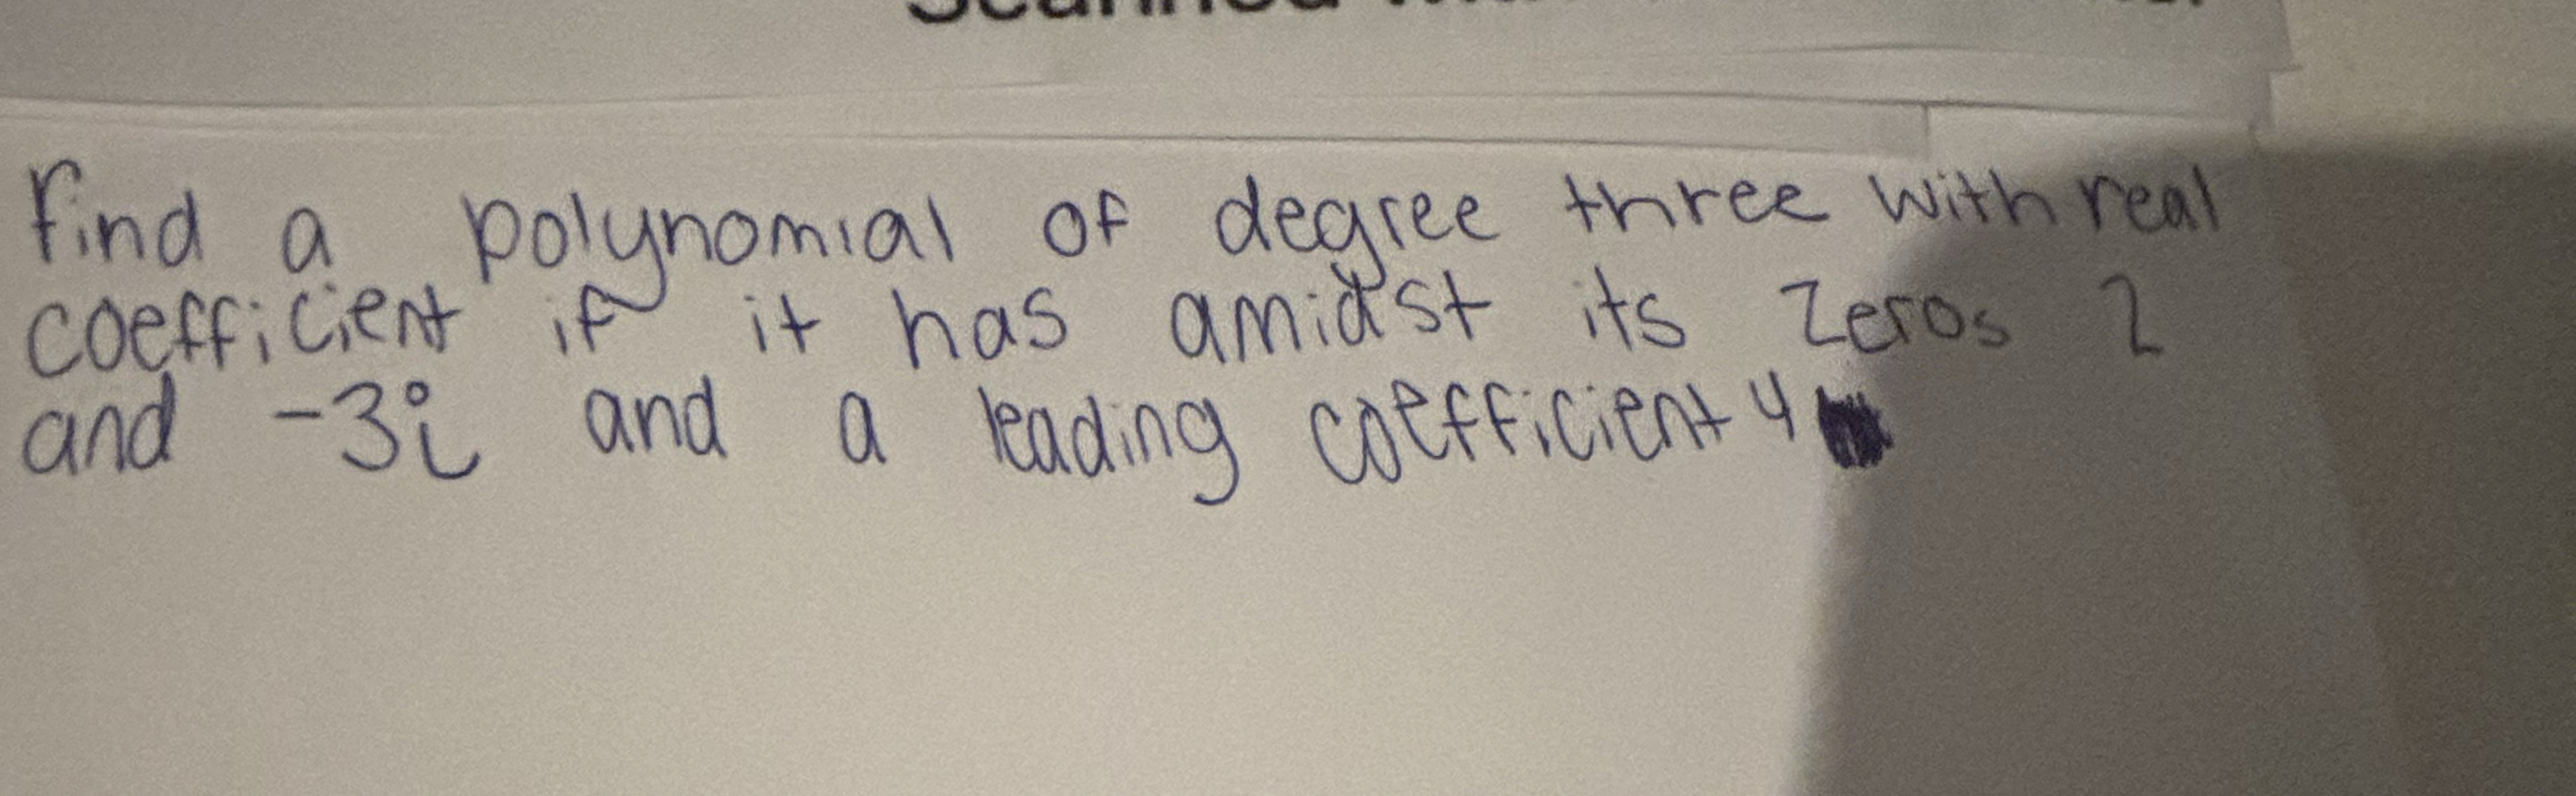 Find a polynomial of degree three with real
coefficient if it has amidst its zeros 2
and -3i and a leading coefficient 4